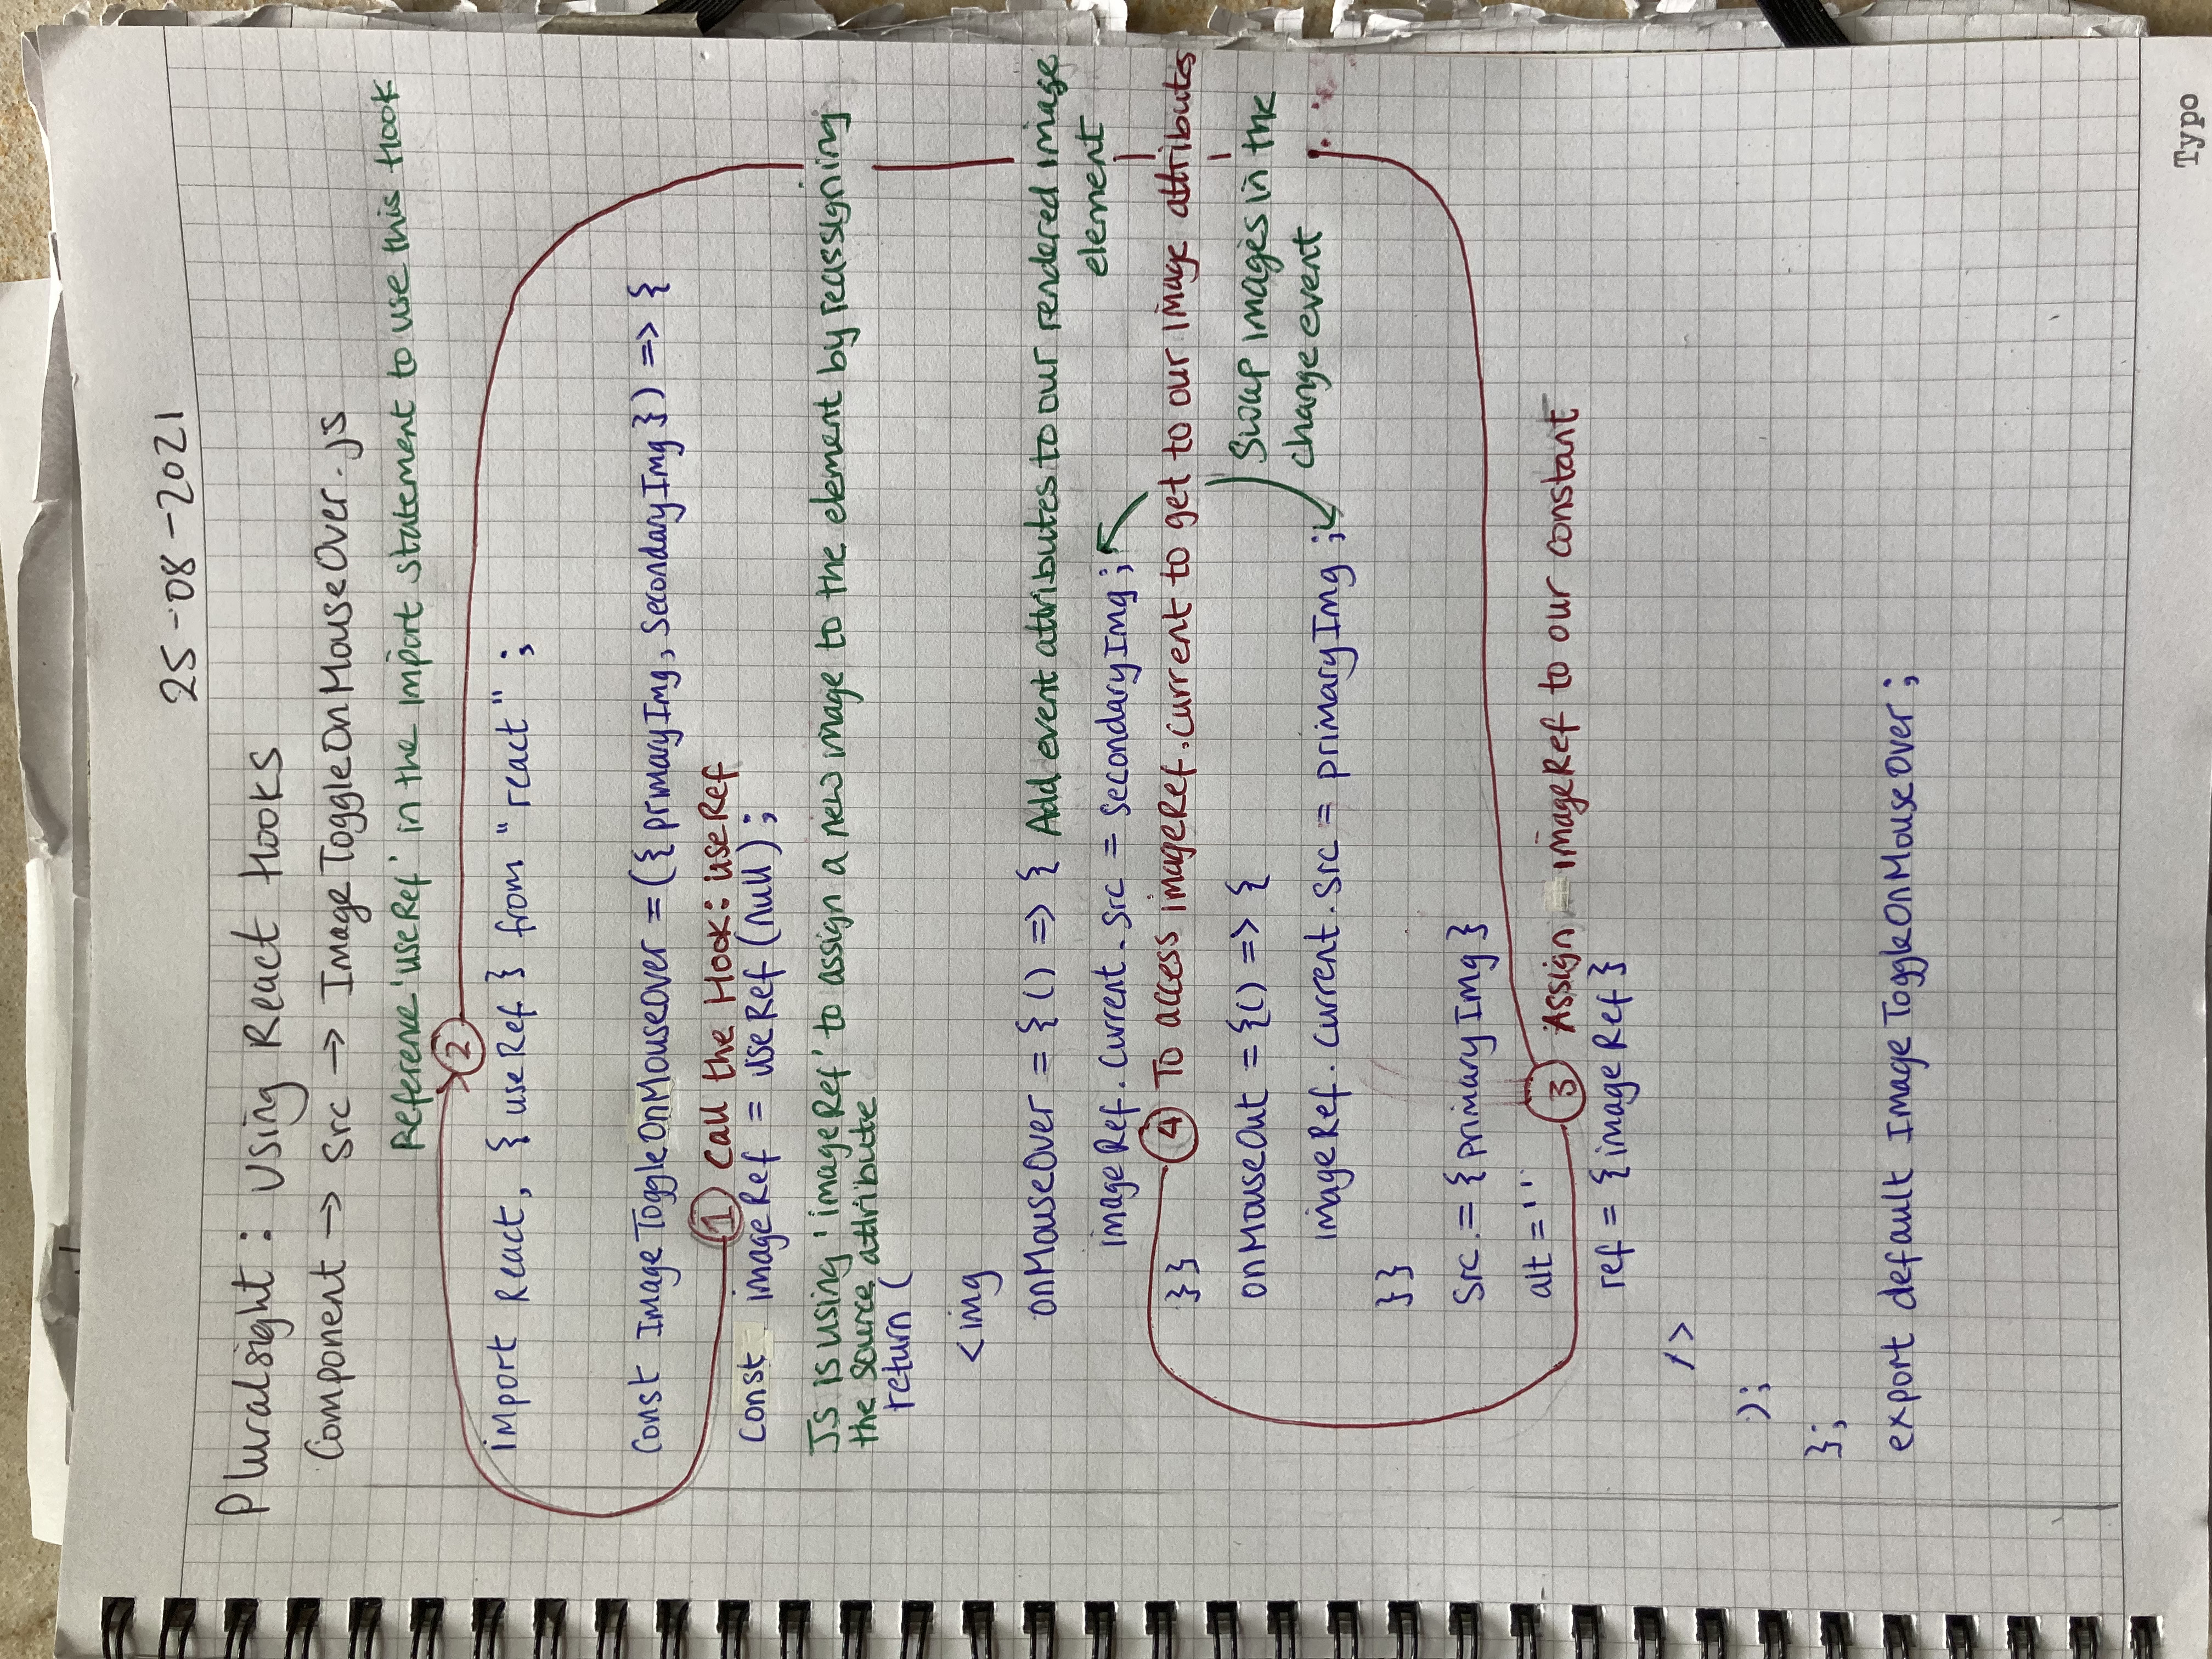 25-08-2021
Pluralsight : Using React Hooks
Component → src → ImageToggleOnMouseOver.js
Reference 'useRef' in the import statement to use this Hook
2
import React, { useRef } from "react" ;
const ImageToggleOnMouseOver = ({ primaryImg, secondaryImg }) => {
1 Call the Hook: useRef
const imageRef = useRef (null) ;
JS is using 'imageRef' to assign a new image to the element by reassigning
the source attribute
return (
<img
onMouseOver = { () => { Add event attributes to our rendered image
element
imageRef.current.src = secondaryImg ;
}} 4 To access imageRef.current to get to our image attributes
onMouseOut = {() => { Swap images in the
change event
imageRef.current.src = primaryImg ;
}}
src = { primaryImg }
alt = ''
3 Assign imageRef to our constant
ref = { imageRef }
/>
);
};
export default ImageToggleOnMouseOver ;
Typo